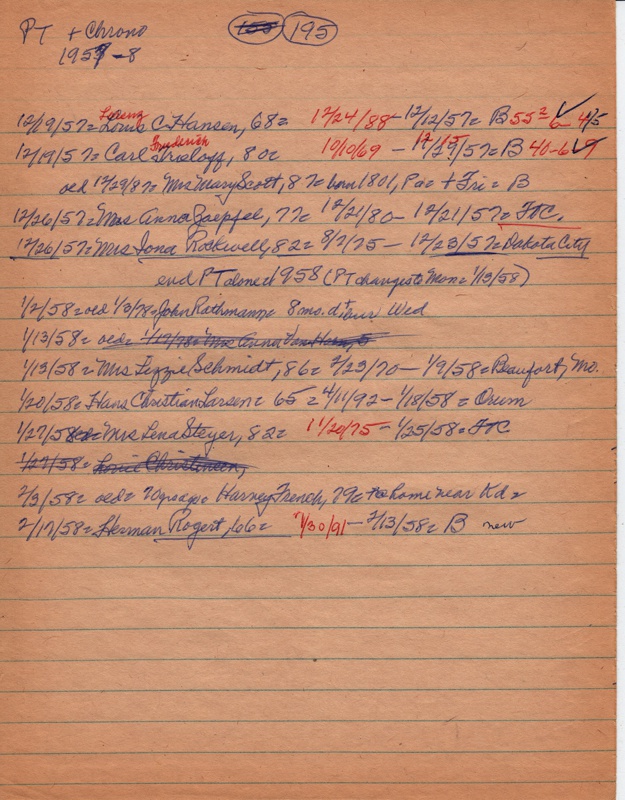 PT + Chrono 155 195
1957-8
12/19/57= Lorenz Louis C. Hansen, 68= 12/24/88-12/12/57= B 55 2/6 - 4/5
12/19/57= Carl Frederich 80= 10/10/69 - 12/15/57= B 40-6 9
oed 12/29/87= Mrs Mary Scott, 87= born 1801, Pa= + Fri= B
12/26/57= Mrs Anna Goepfel, 77= 12/21/80- 12/21/57= FTC.
12/26/57= Mrs Iona Rockwell, 82= 8/2/75 - 12/23/57= Dakota City
end PT alone 1958 (PT changes to Mon= 1/13/58)
1/2/58= oed 1/3/78= John Rathmann= 8 mo. dtr bur Wed
1/13/58= oed= 1/17/78= Mrs Anna
1/13/58= Mrs Lizzie Schmidt, 86= 2/23/70 - 1/9/58= Beaufort, Mo.
1/20/58= Hans Christian Larsen= 65= 4/11/92 - 1/18/58= Orum
1/27/58= Mrs Lena Steyer, 82= 11/20/75 - 1/25/58= FTC
1/27/58= Louie Christensen,
2/3/58= oed= 70 yrs ago= Harney French, 79= home near Kd=
2/17/58= Herman Rogert, 66= 7/30/91 - 2/13/58= B new